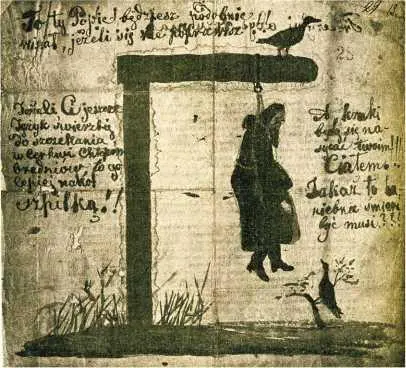 To ty Popie! będziesz podobnie!!!
wisiał, jeżeli się nie poprawisz
Jeżeli Ci jeszcze
Język świerzbi
do szczekania
w cerkwi
to go
lepiej nakol
szpilką!!
A kruki
będą się na-
sycać twoim!!!
Ciałem.
Jakaż to ha-
niebna śmierć
być musi???